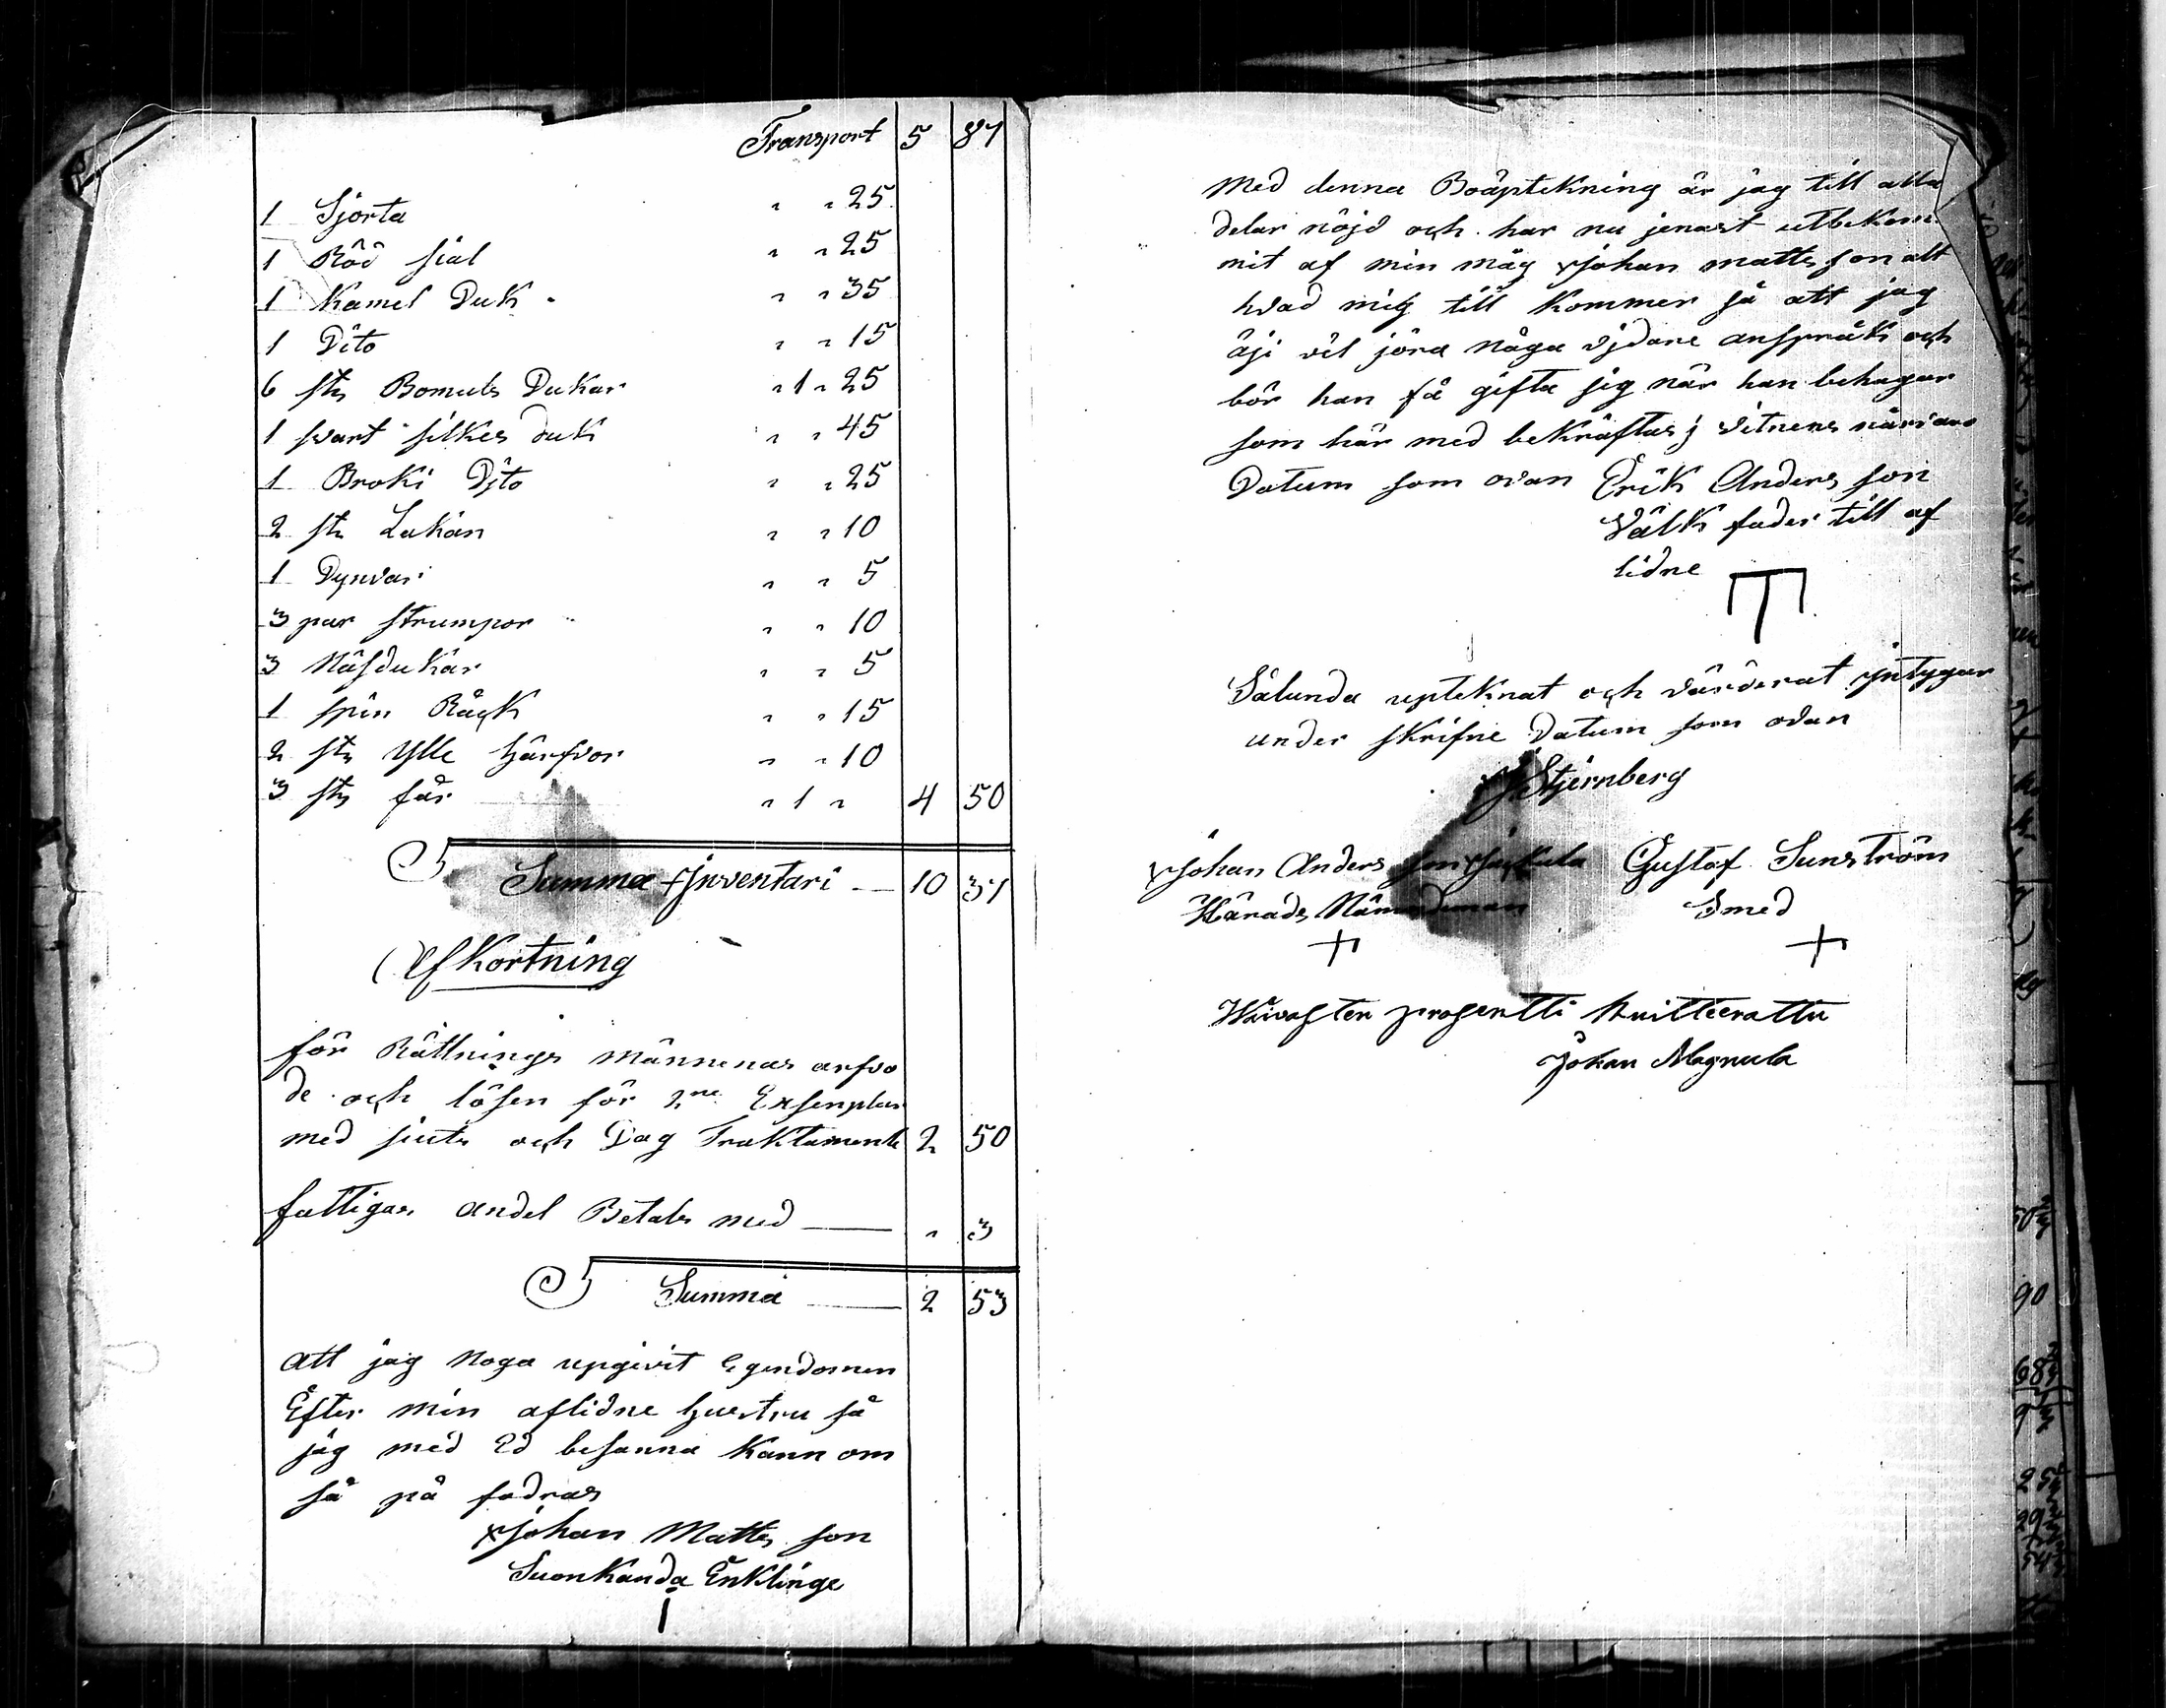 Transport 5 87
1 Sjorta " " 25
1 Röd sial " " 25
1 Kamel Duk " " 35
1 Dito " " 15
6 st Bomuls Dukar " 1 " 25
1 svart silkes duk " " 45
1 Broki Dito " " 25
2 st Lakan " " 10
1 Dynvar " " 5
3 par strumpor " " 10
3 Näsdukar " " 5
1 spin Råck " " 15
2 st Ylle Härfvor " " 10
3 st får " 1 " 4 50
Summa Inventari 10 37
Afkortning
för Rättnings männenas arfvo
de och lösen för 2ne Exsemplar
med siuts och Dag Traktamente 2 50
fattigas andel Betals med " 3
Summa 2 53
att jag noga upgivit Egendomen
Efter min aflidne hustru så
jag med Ed besanna kann om
så på fodras
Johan Matts son
Suonkanda Enklinge
Med denna Boäptekning är jag till alla
delar nöjd och har nu jenast utbekom
mit af min måg Johan mattsson alt
hvad mig till kommer så att jag
äji vil jöra någa vjdare anspråk och
bör han få gifta sig när han behagar
som här med bekräftas j vitnens närvaro
Datum som ovan Erik Anders son
Välk fader till af
lidne
Sålunda upteknat och värderat intygar
under skrifne Datum som ovan
J Stjernberg
Johan Anders son Gustaf Sunström
Härads Nämndeman Smed
++
Waivasten prosentti kuitteerattu
Johan Magnula
50
90
68
9
25
29
54